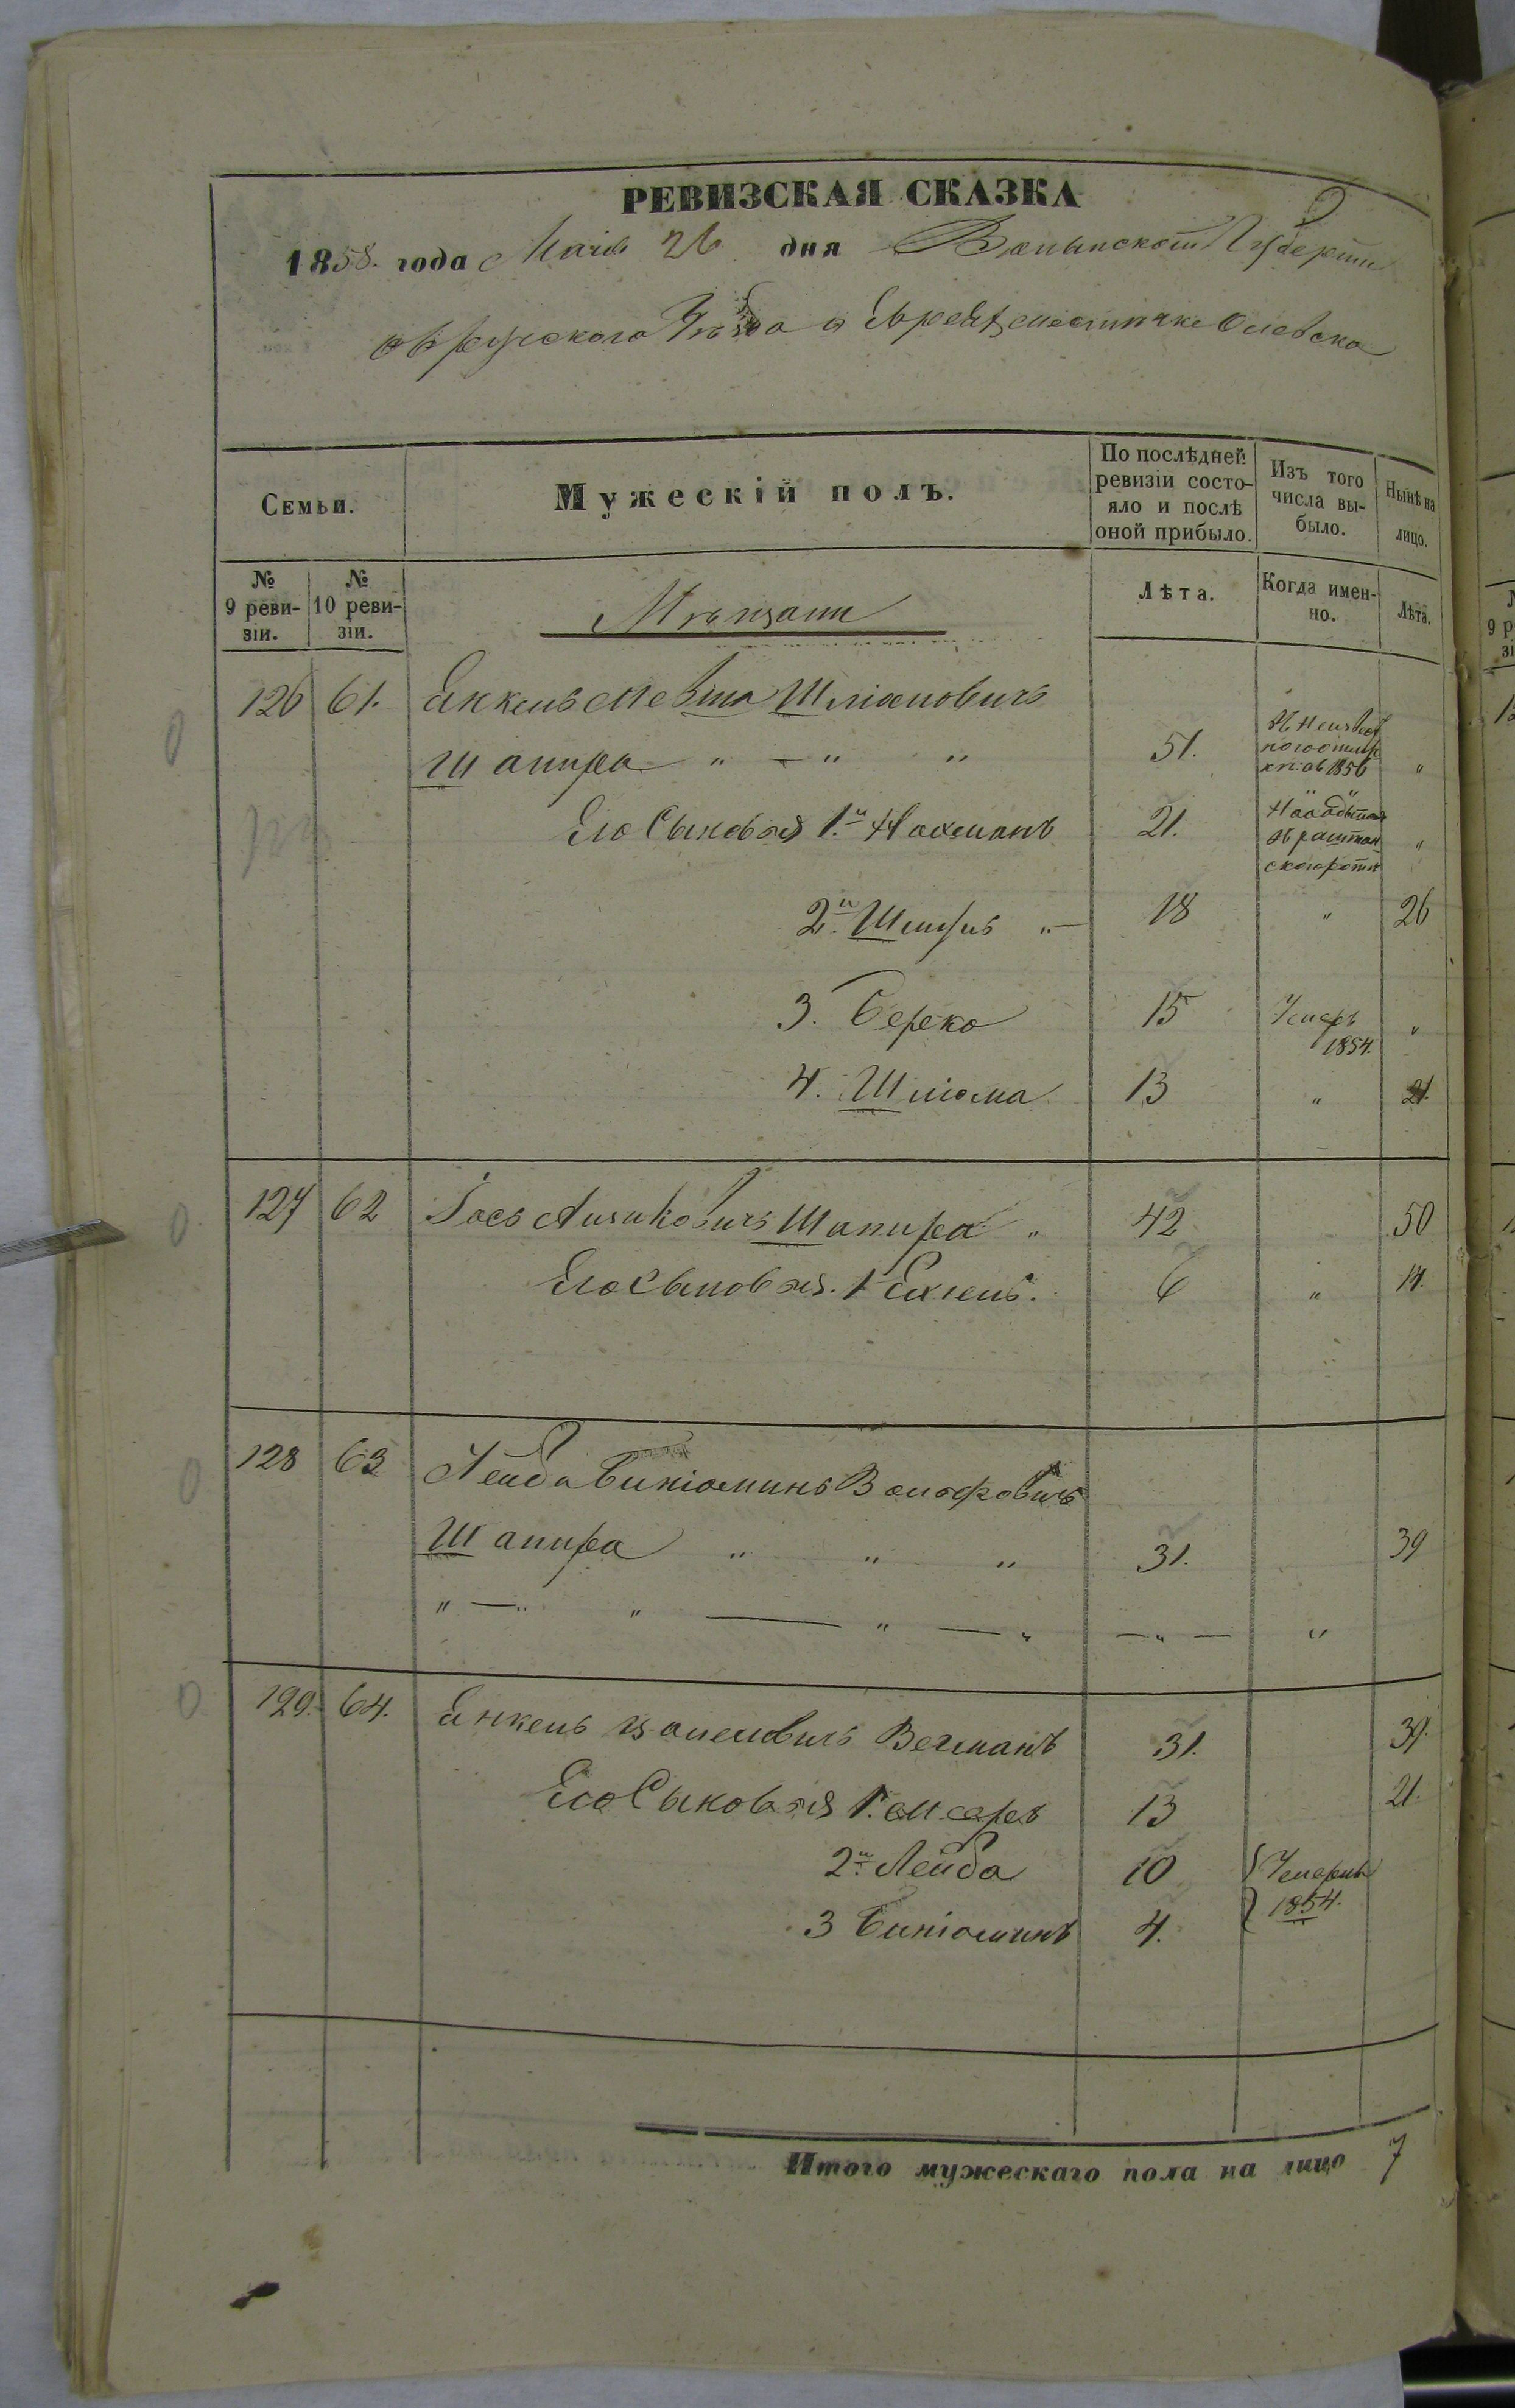 РЕВИЗСКАЯ СКАЗКА
1858. года Маія 26 дня Волынской Губерніи
Овручского Уѣзда о Евреяхъ местичке Олевска
Семьи.
Мужескій полъ.
По послѣдней ревизіи состояло и послѣ оной прибыло.
Изъ того числа выбыло.
Нынѣ на лицо.
№ 9 ревизіи.
№ 10 ревизіи.
Мѣщани
Лѣта.
Когда именно.
Лѣта.
126 61. Янкель Шліомовичъ
Шапира " " " 51. 1856 "
Его Сыновья 1.й Нахманъ 21. "
2.й " 18 " 26
3. Берко 15 Умеръ 1854. "
4. Шліома 13 " 21.
127 62 Іось Айзиковичъ Шапира " 42 50
Его Сыновья. 1 6 " 14.
128 63 Лейба Биніоминъ Вольфовичъ
Шапира " " " 31. 39
" — " " — " — " — " — "
129. 64. Янкель Вегманъ 31. 39.
Его Сыновья 1. 13 21.
2.й Лейба 10 Умерли 1854.
3 Биніоминъ 4.
Итого мужескаго пола на лицо 7